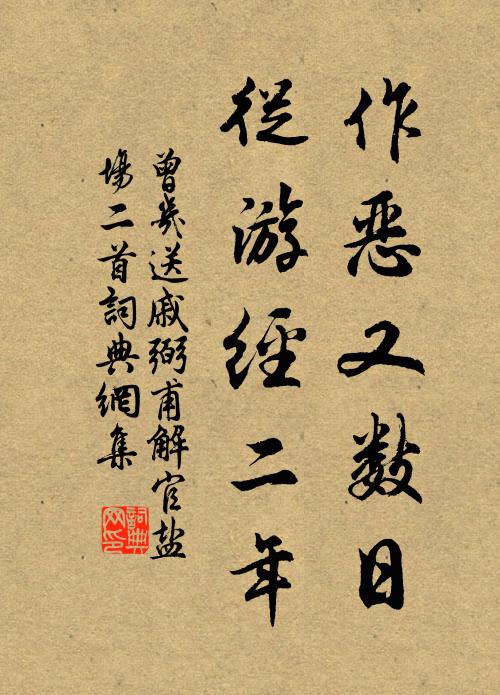 作惡又数日
從游經二年
曾幾送戚弼甫解官盐
場二首詞典網集
詞典
网印